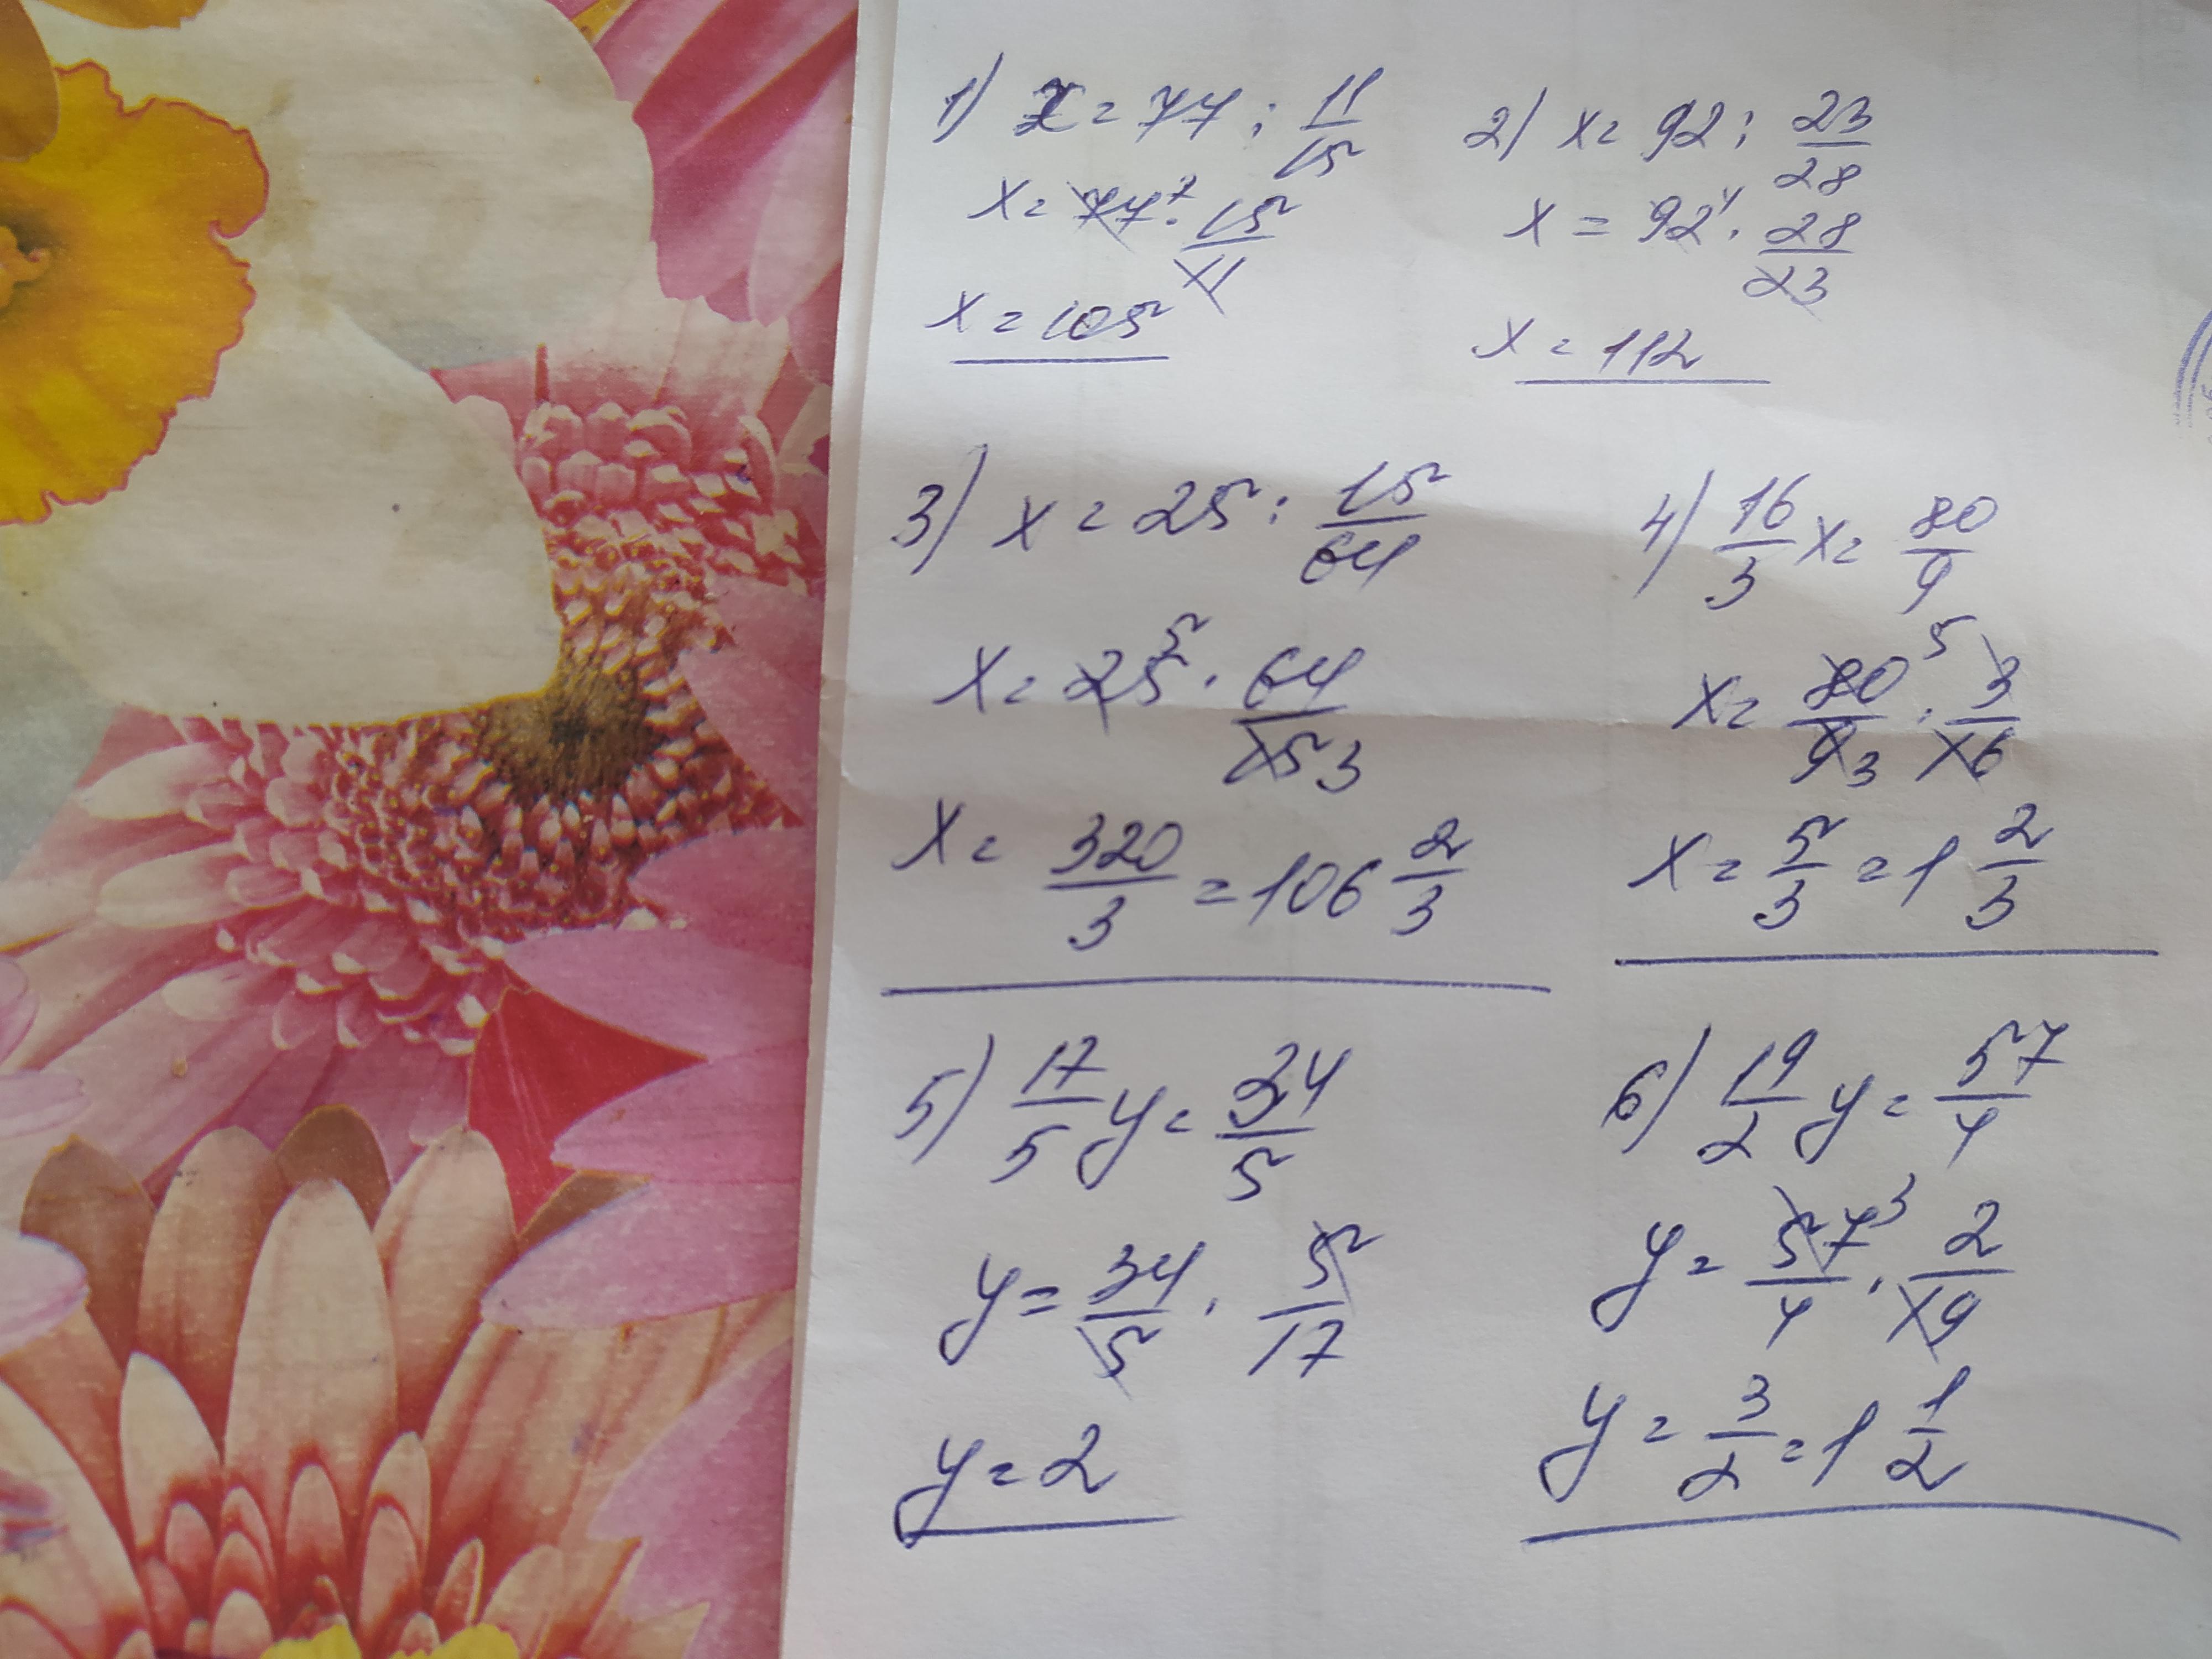 1) x = 77 : 11/15
x = 77⁷ · 15/11
x = 105
2) x = 92 : 23/28
x = 92⁴ · 28/23
x = 112
3) x = 25 : 15/64
x = 25⁵ · 64/15 3
x = 320/3 = 106 2/3
4) 16/3 x = 80/9
x = 80⁵/9 3 · 3/16
x = 5/3 = 1 2/3
5) 17/5 y = 34/5
y = 34/5 · 5/17
y = 2
6) 19/2 y = 57/4
y = 57³/4 · 2/19
y = 3/2 = 1 1/2